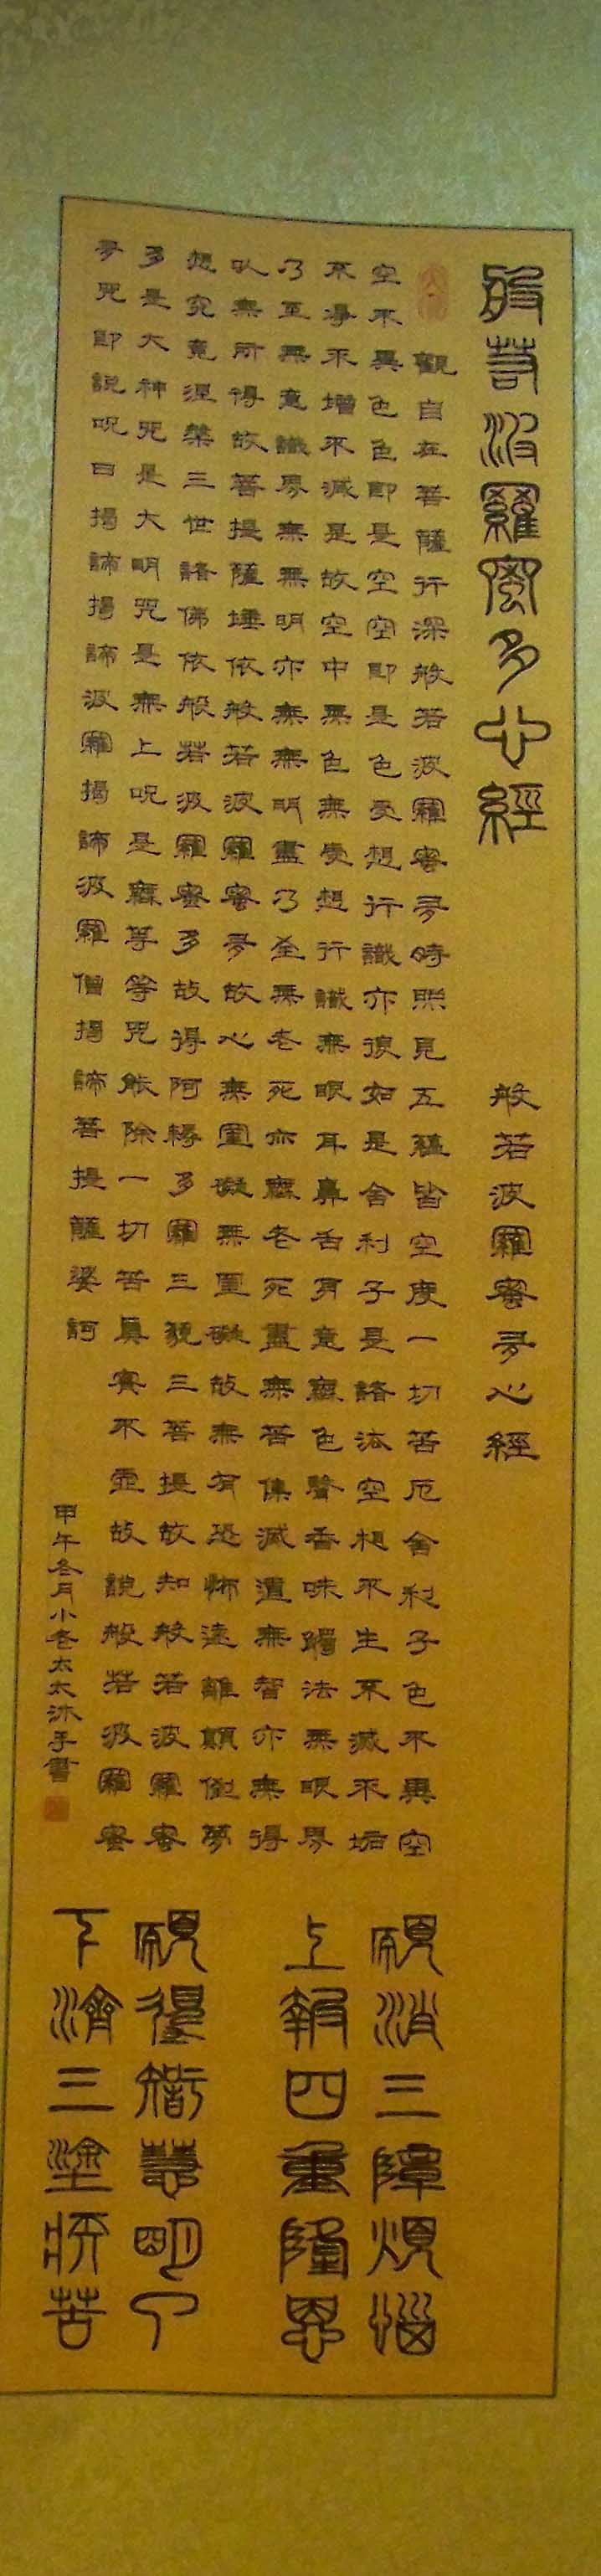 般若波羅蜜多心經
般若波羅蜜多心經
觀自在菩薩行深般若波羅蜜多時照見五蘊皆空度一切苦厄舍利子色不異空
空不異色色即是空空即是色受想行識亦復如是舍利子是諸法空想不生不滅不垢
不淨不增不減是故空中無色無受想行識無眼耳鼻舌身意無色聲香味觸法無眼界
乃至無意識界無無明亦無無明盡乃至無老死亦無老死盡無苦集滅道無智亦無得
以無所得故菩提薩埵依般若波羅蜜多故心無罣礙無罣礙故無有恐怖遠離顛倒夢
想究竟涅槃三世諸佛依般若波羅蜜多故得阿耨多羅三藐三菩提故知般若波羅蜜
多是大神咒是大明咒是無上呪是無等等咒能除一切苦真實不虛故說般若波羅蜜
多咒即說呪曰揭諦揭諦波羅揭諦波羅僧揭諦菩提薩婆訶
甲午冬月小老太太沐手書
願消三障煩惱
上報四重隆恩
願得智慧明了
下濟三塗疾苦